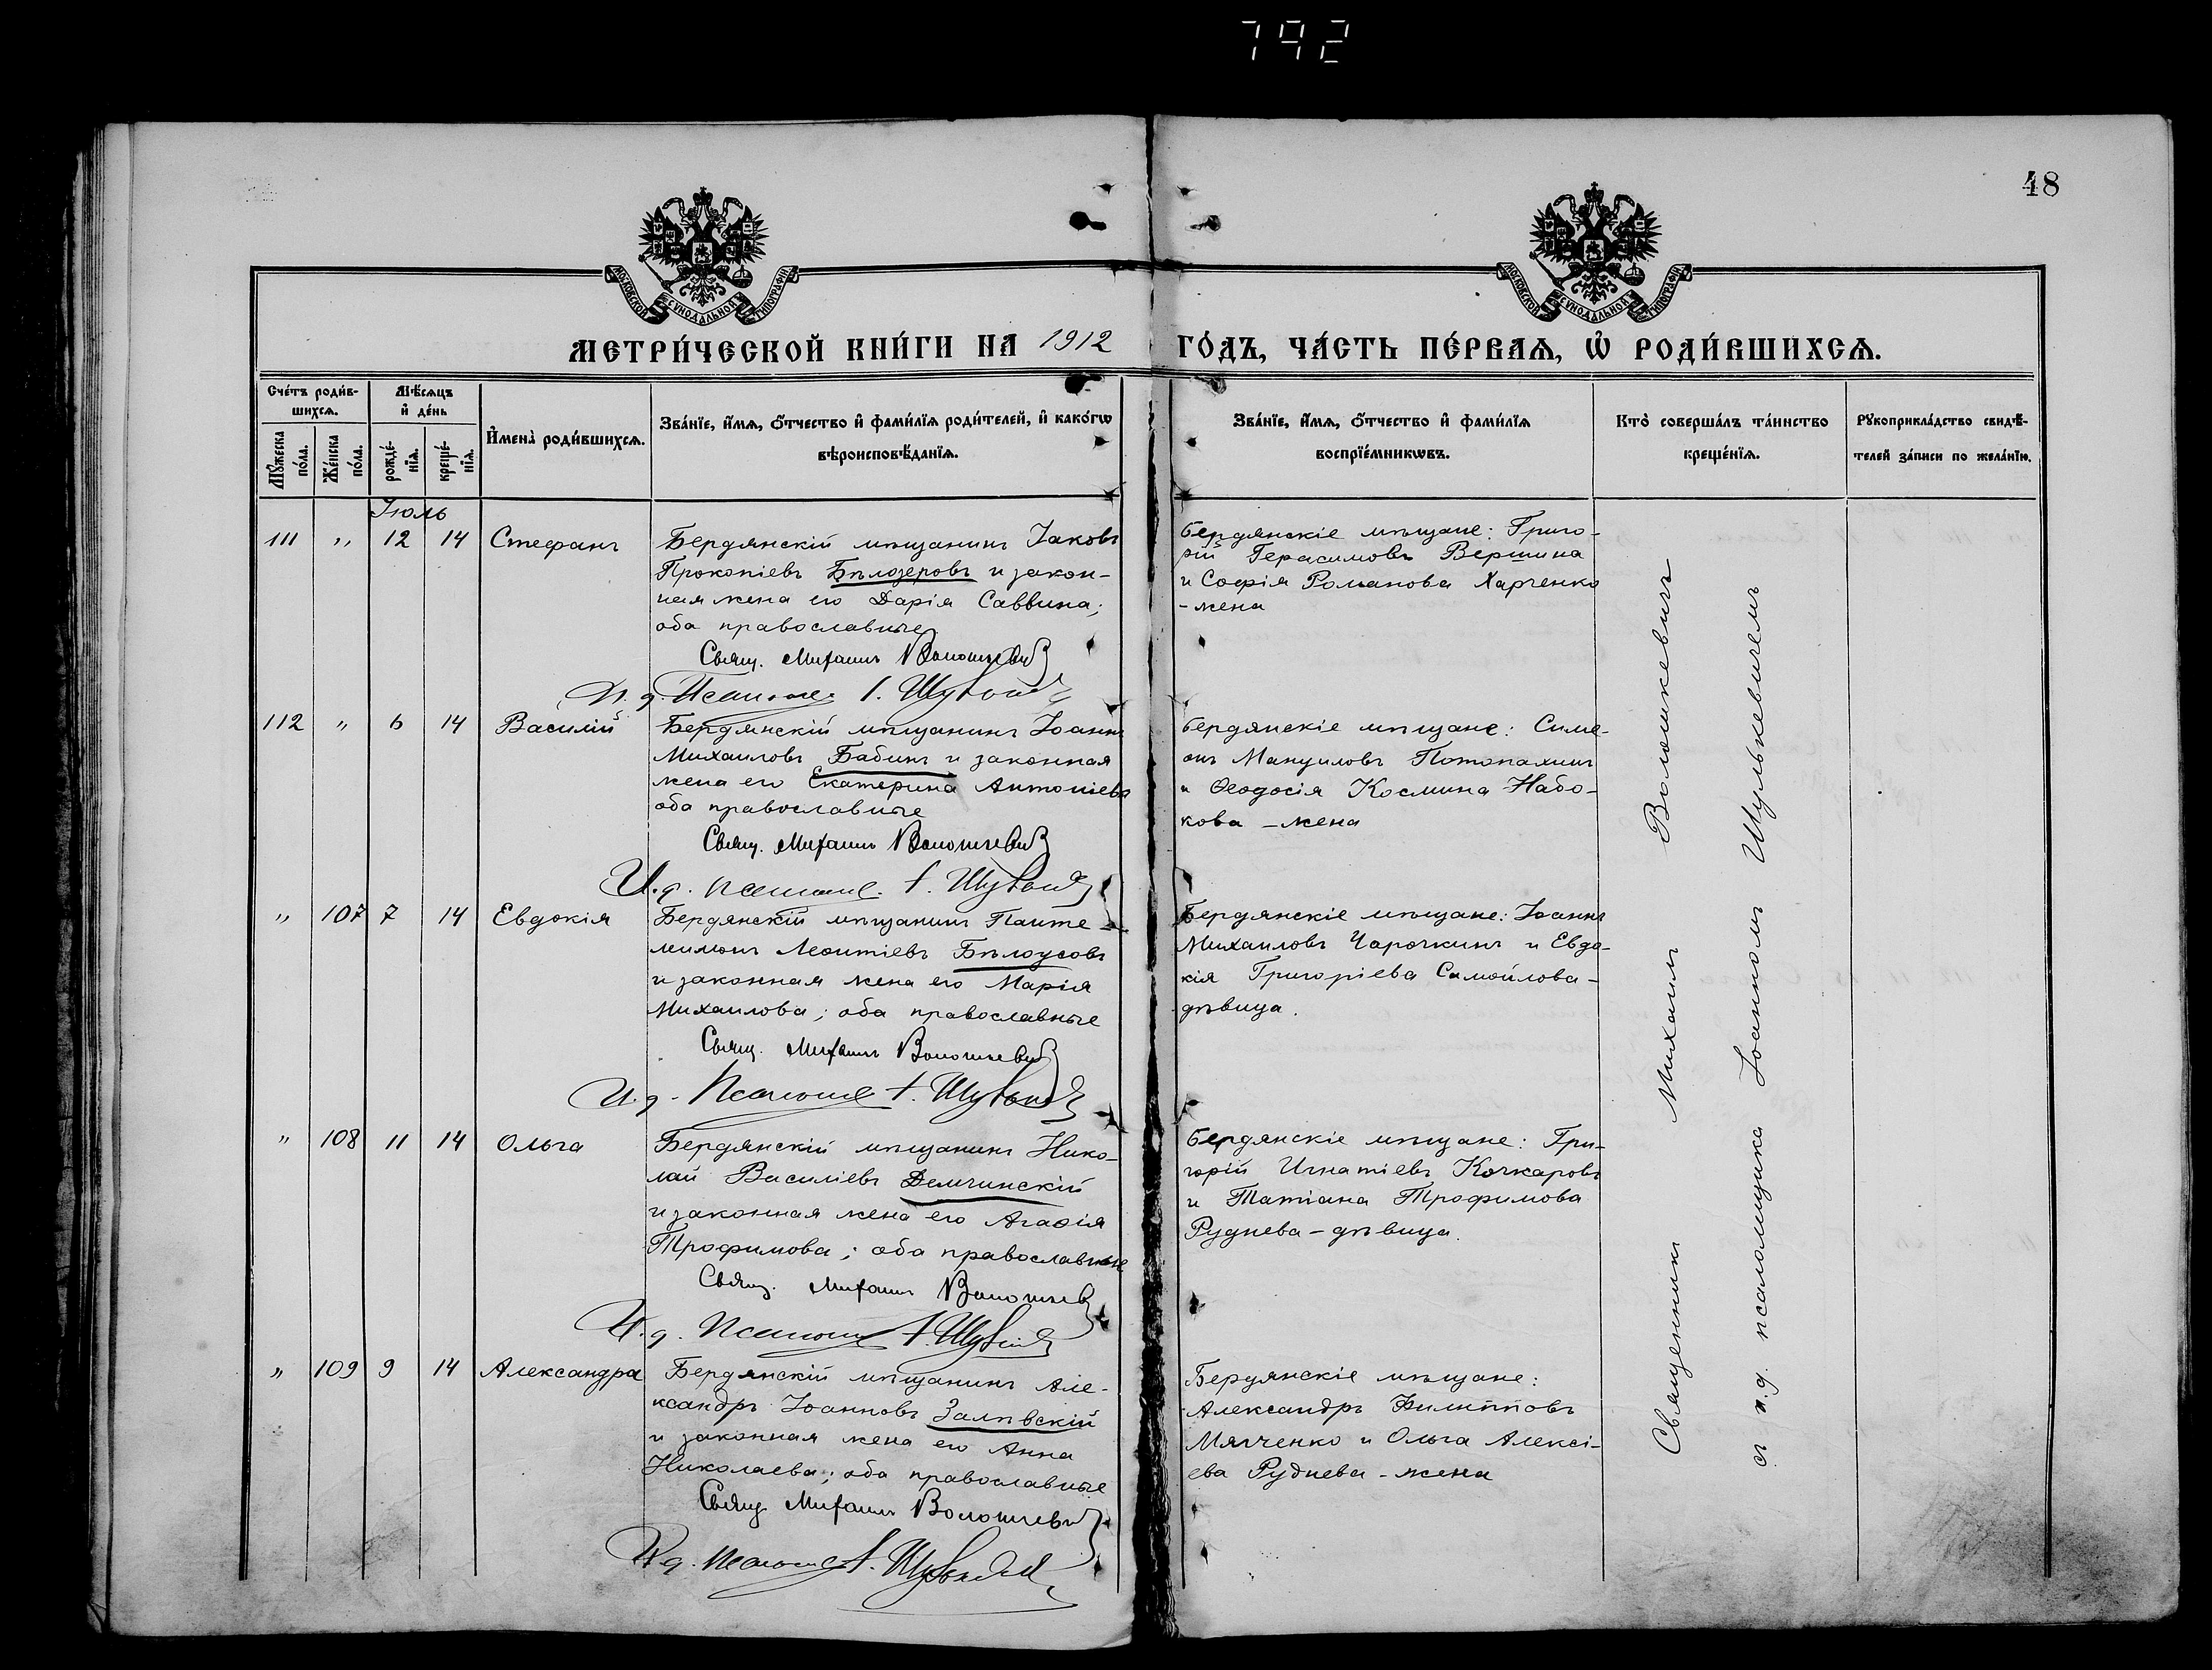 792
48
МОСКОВСКОЙ СѴНОДАЛЬНОЙ ТИПОГРАФІИ
МОСКОВСКОЙ СѴНОДАЛЬНОЙ ТИПОГРАФІИ
МЕТРИ́ЧЕСКОЙ КНИ́ГИ НА 1912 ГО́ДЪ, ЧА́СТЬ ПЕ́РВАѦ, Ѽ РОДИ́ВШИХСѦ.
Сче́тъ роди́в-
шихсѧ.
Мꙋ́жеска
по́ла.
Же́нска
по́ла.
Мѣ́сѧцъ
и҆ де́нь
рожде́-
нїѧ.
креще́-
нїѧ.
И҆мена̀ роди́вшихсѧ.
Зва́нїе, и҆́мѧ, ѻ҆́тчество и҆ фами́лїѧ роди́телей, и҆ како́гѡ
вѣроисповѣ́данїѧ.
Зва́нїе, и҆́мѧ, ѻ҆́тчество и҆ фами́лїѧ
воспрїе́мникѡвъ.
Кто̀ соверша́лъ та́инство
креще́нїѧ.
Рꙋкоприкла́дство свидѣ́-
телей за́писи по жела́нїю.
Іюль
111 " 12 14 Стефанъ
Бердянскій мѣщанинъ Іаковъ
Прокопіевъ Бѣлозеровъ и закон-
ная жена его Дарія Саввина;
оба православные
Свящ. Михаилъ Волошкевич
И. д. Псаломщ. І.
Бердянскіе мѣщане: Григо-
рій Герасимовъ Вершина
и Софія Романова Харченко
-жена
112 " 6 14 Василій
Бердянскій мѣщанинъ Іоаннъ
Михаиловъ Бабинъ и законная
жена его Екатерина Антоніева
оба православные
Свящ. Михаилъ Волошкевич
И. д. псаломщ. І.
Бердянскіе мѣщане: Симе-
онъ Мануиловъ Потопахинъ
и Ѳеодосія Космина Набо-
кова -жена
" 107 7 14 Евдокія
Бердянскій мѣщанинъ Панте-
лимонъ Леонтіевъ Бѣлоусовъ
и законная жена его Марія
Михаилова; оба православные
Свящ. Михаилъ Волошкевич
И. д. Псаломщ. І.
Бердянскіе мѣщане: Іоаннъ
Михаиловъ Чарочкинъ и Евдо-
кія Григоріева Самойлова-
дѣвица.
" 108 11 14 Ольга
Бердянскій мѣщанинъ Нико-
лай Василіевъ Демчинскій
и законная жена его Агаѳія
Трофимова; оба православные
Свящ. Михаилъ Волошкевич
И. д. Псаломщ. І.
Бердянскіе мѣщане: Гри-
горій Игнатіевъ Кочкаровъ
и Татіана Трофимова
Руднева-дѣвица.
" 109 9 14 Александра
Бердянскій мѣщанинъ Але-
ксандръ Іоанновъ Залѣвскій
и законная жена его Анна
Николаева; оба православные
Свящ. Михаилъ Волошкевич
И. д. псаломщ. І.
Бердянскіе мѣщане:
Александръ Филипповъ
Мягченко и Ольга Алексі-
ева Руднева -жена
Священникъ Михаилъ Волошкевичъ
съ и.д. псаломщика Іоанномъ Шулькевичемъ